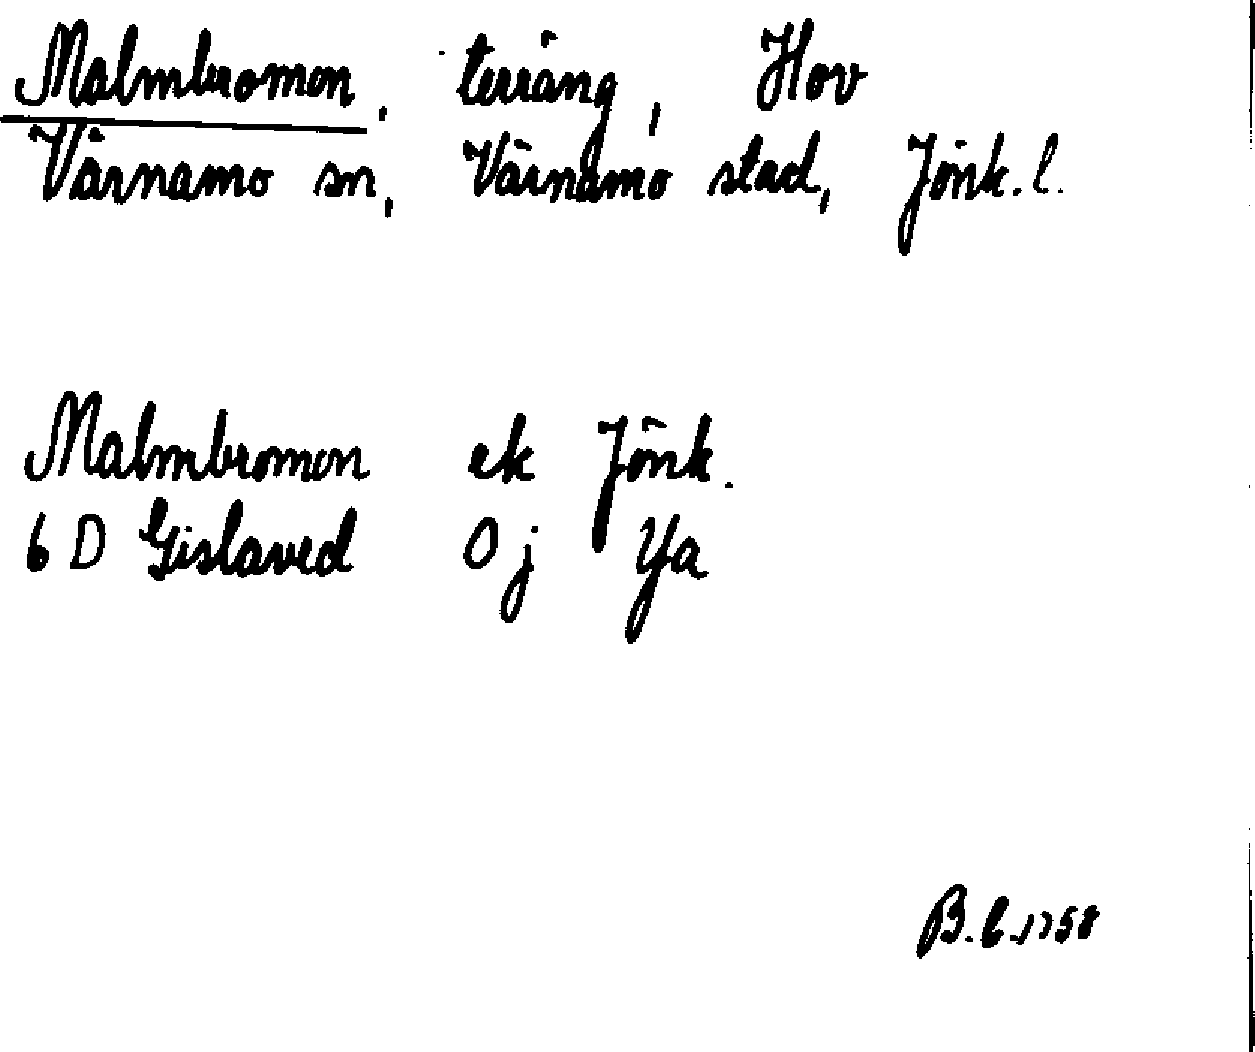 Malmbromon, terräng, Hov
Värnamo sn, Värnamo stad, Jönk. l.
Malmbromon ek Jönk.
6 D Gislaved 0 j Ya